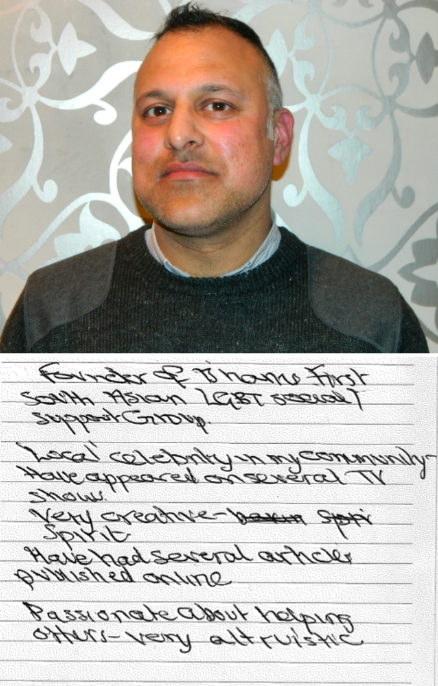 Founder of B'hams First
South Asian LGBT social/
support Group.
'Local' celebrity in my community-
Have appeared on several TV
shows.
Very creative-
Spirit
Have had several articles
published online
Passionate about helping
others- very altruistic